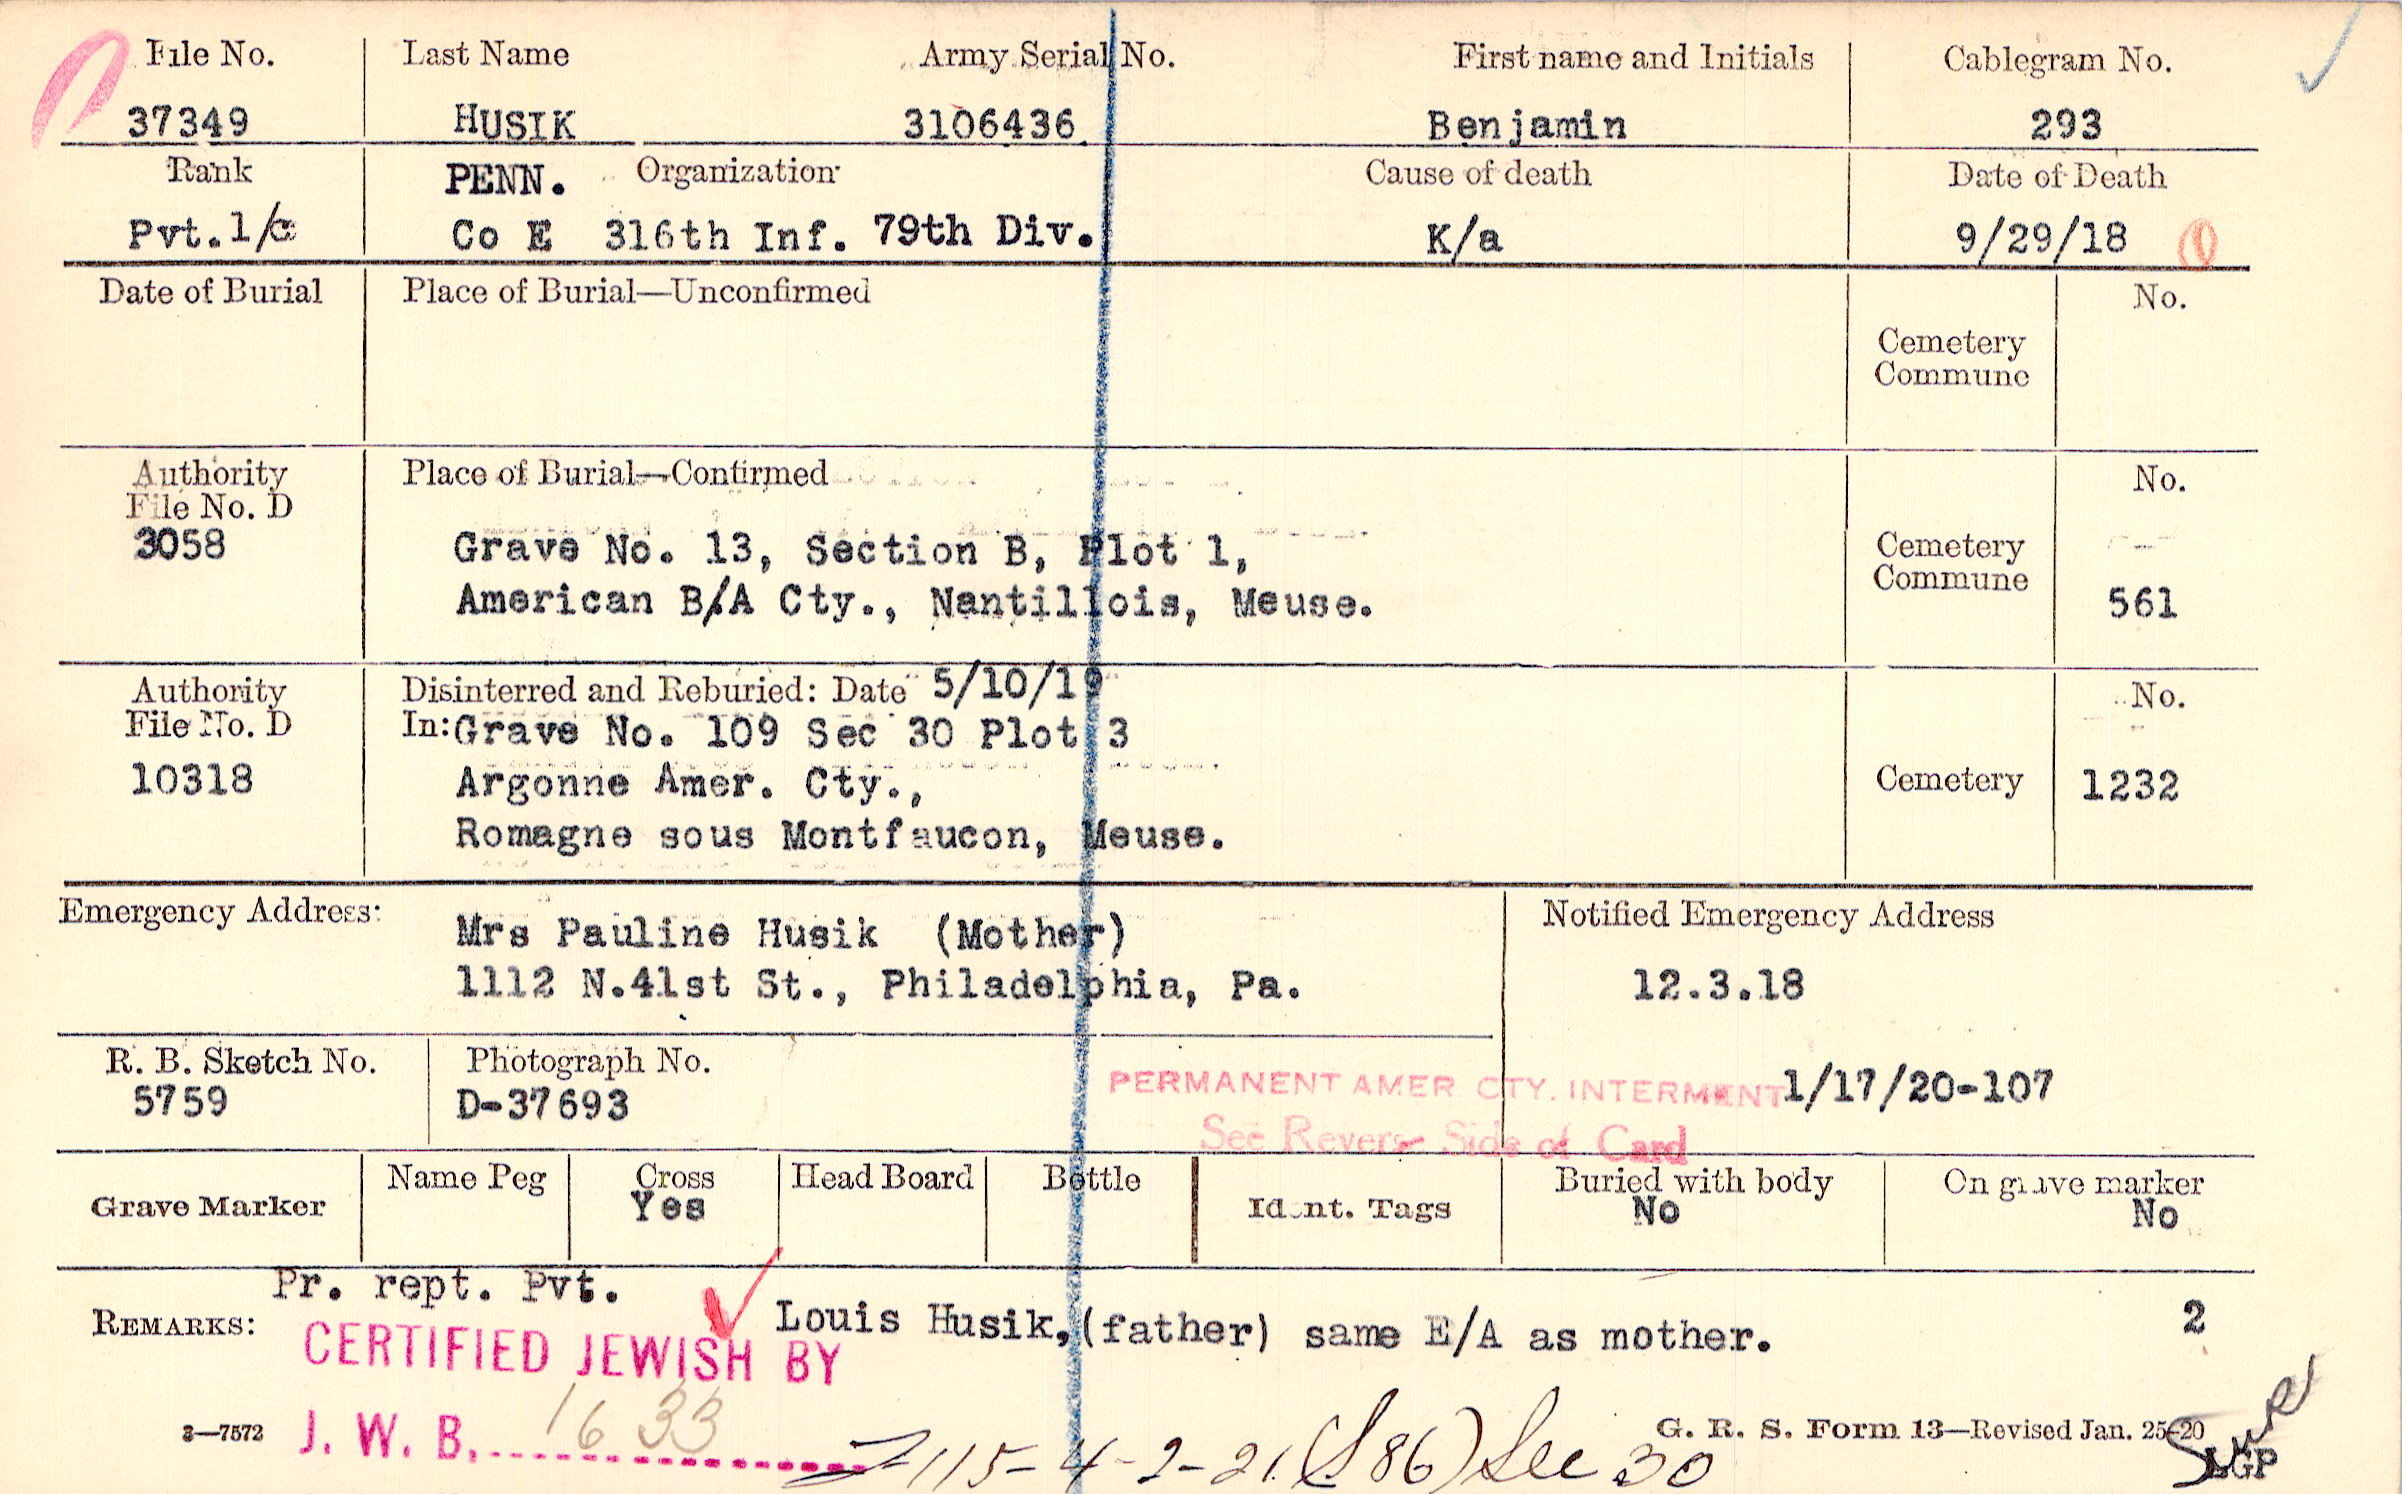 File No. Last Name Army Serial No. First name and Initials Cablegram No.
37349 HUSIK 3106436 Benjamin 293
Rank PENN. Organization Cause of death Date of Death
Pvt. 1/c Co E 316th Inf. 79th Div. K/a 9/29/18
Date of Burial Place of Burial—Unconfirmed No.
Cemetery
Commune
Authority Place of Burial—Confirmed No.
File No. D
3058 Grave No. 13, Section B, Plot 1, Cemetery
American B/A Cty., Nantillois, Meuse. Commune 561
Authority Disinterred and Reburied: Date 5/10/19 No.
File No. D In: Grave No. 109 Sec 30 Plot 3
10318 Argonne Amer. Cty., Cemetery 1232
Romagne sous Montfaucon, Meuse.
Emergency Address: Mrs Pauline Husik (Mother) Notified Emergency Address
1112 N.41st St., Philadelphia, Pa. 12.3.18
R. B. Sketch No. Photograph No.
5759 D-37693 PERMANENT AMER CTY. INTERMENT 1/17/20-107
See Reverse Side of Card
Grave Marker Name Peg Cross Head Board Bottle Ident. Tags Buried with body On grave marker
Yes No No
Pr. rept. Pvt.
REMARKS: Louis Husik, (father) same E/A as mother. 2
CERTIFIED JEWISH BY
J. W. B. 1633
3—7572 G. R. S. Form 13—Revised Jan. 25-20
115-4-2-21 (S86) Sec 30 LGP